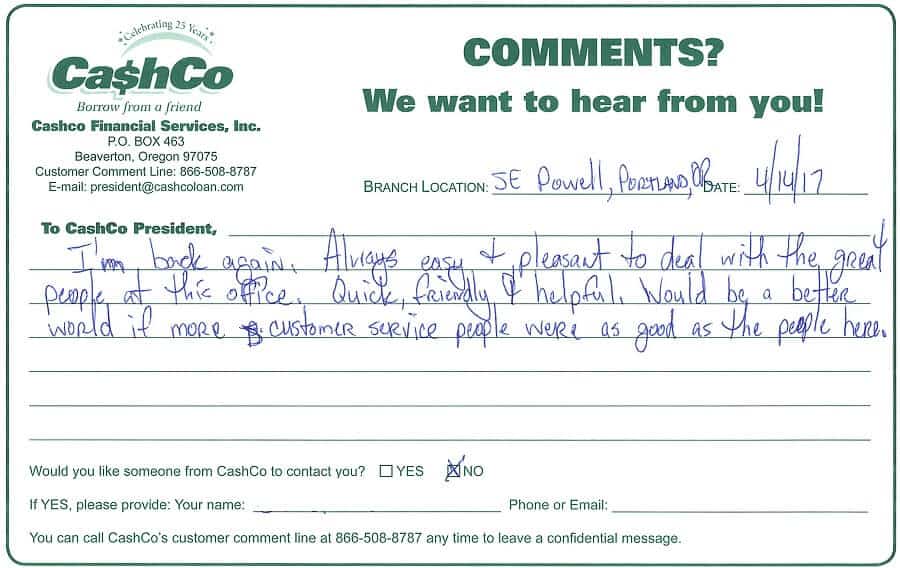 Celebrating 25 Years
Ca$hCo
Borrow from a friend
Cashco Financial Services, Inc.
P.O. BOX 463
Beaverton, Oregon 97075
Customer Comment Line: 866-508-8787
E-mail: president@cashcoloan.com
COMMENTS?
We want to hear from you!
BRANCH LOCATION: SE Powell, PORTLAND, OR DATE: 4/14/17
To CashCo President,
I'm back again. Always easy & pleasant to deal with the great
people at this office. Quick, friendly & helpful. Would be a better
world if more customer service people were as good as the people here.
Would you like someone from CashCo to contact you? ☐ YES ☒ NO
If YES, please provide: Your name: Phone or Email:
You can call CashCo's customer comment line at 866-508-8787 any time to leave a confidential message.